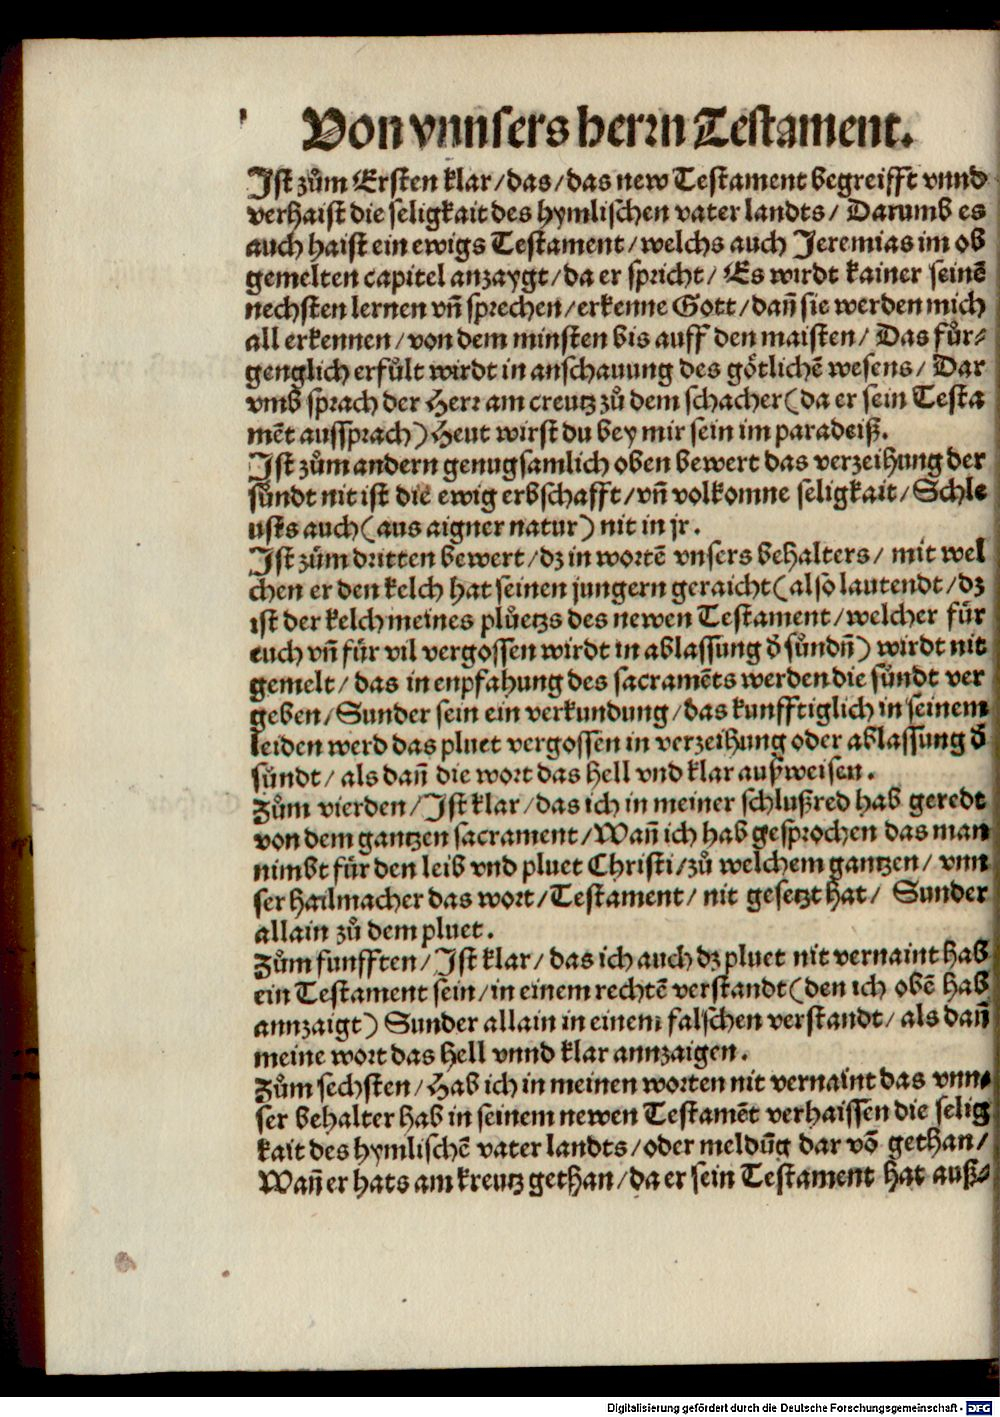 Von vnnsers herrn Testament.
Ist zům Ersten klar/das/das new Testament begreifft vnnd
verhaist die seligkait des hymlischen vater landts/ Darumb es
auch haist ein ewigs Testament/welchs auch Jeremias im ob
gemelten capitel anzaygt/da er spricht/ Es wirdt kainer seinē
nechsten lernen vn̄ sprechen/erkenne Gott/dan̄ sie werden mich
all erkennen/von dem minsten bis auff den maisten/ Das fůr⸗
genglich erfůlt wirdt in anschauung des gȯtlichē wesens/ Dar
vmb sprach der Herr am creutz zů dem schacher(da er sein Testa
mēt aussprach)Heut wirst du bey mir sein im paradeiß.
Ist zům andern genugsamlich oben bewert das verzeihung der
sůndt nit ist die ewig erbschafft/vn̄ volkomne seligkait/Schle
usts auch(aus aigner natur)nit in jr.
Ist zům dritten bewert/dz in wortē vnsers behalters/ mit wel
chen er den kelch hat seinen jungern geraicht(also lautendt/dz
ist der kelch meines plůetzs des newen Testament/welcher fůr
euch vn̄ fůr vil vergossen wirdt in ablassung đ sůndn̄) wirdt nit
gemelt/das in enpfahung des sacramēts werden die sůndt ver
geben/Sunder sein ein verkundung/das kunfftiglich in seinem
leiden werd das pluet vergossen in verzeihung oder ablassung đ
sůndt/als dan̄ die wort das hell vnd klar außweisen.
Zům vierden/Ist klar/das ich in meiner schlußred hab geredt
von dem gantzen sacrament/Wan̄ ich hab gesprochen das man
nimbt fůr den leib vnd pluet Christi/zů welchem gantzen/ vnn
ser hailmacher das wort/Testament/ nit gesetzt hat/ Sunder
allain zů dem pluet.
Zům funfften/Ist klar/das ich auch dz pluet nit vernaint hab
ein Testament sein/in einem rechtē verstandt(den ich obē hab
annzaigt)Sunder allain in einem falschen verstandt/als dan̄
meine wort das hell vnnd klar annzaigen.
Zům sechsten/Hab ich in meinen worten nit vernaint das vnn⸗
ser behalter hab in seinem newen Testamēt verhaissen die selig
kait des hymlischē vater landts/oder meldūg dar vō gethan/
Wan̄ er hats am kreutz gethan/da er sein Testament hat auß⸗
Digitalisierung gefördert durch die Deutsche Forschungsgemeinschaft - DFG